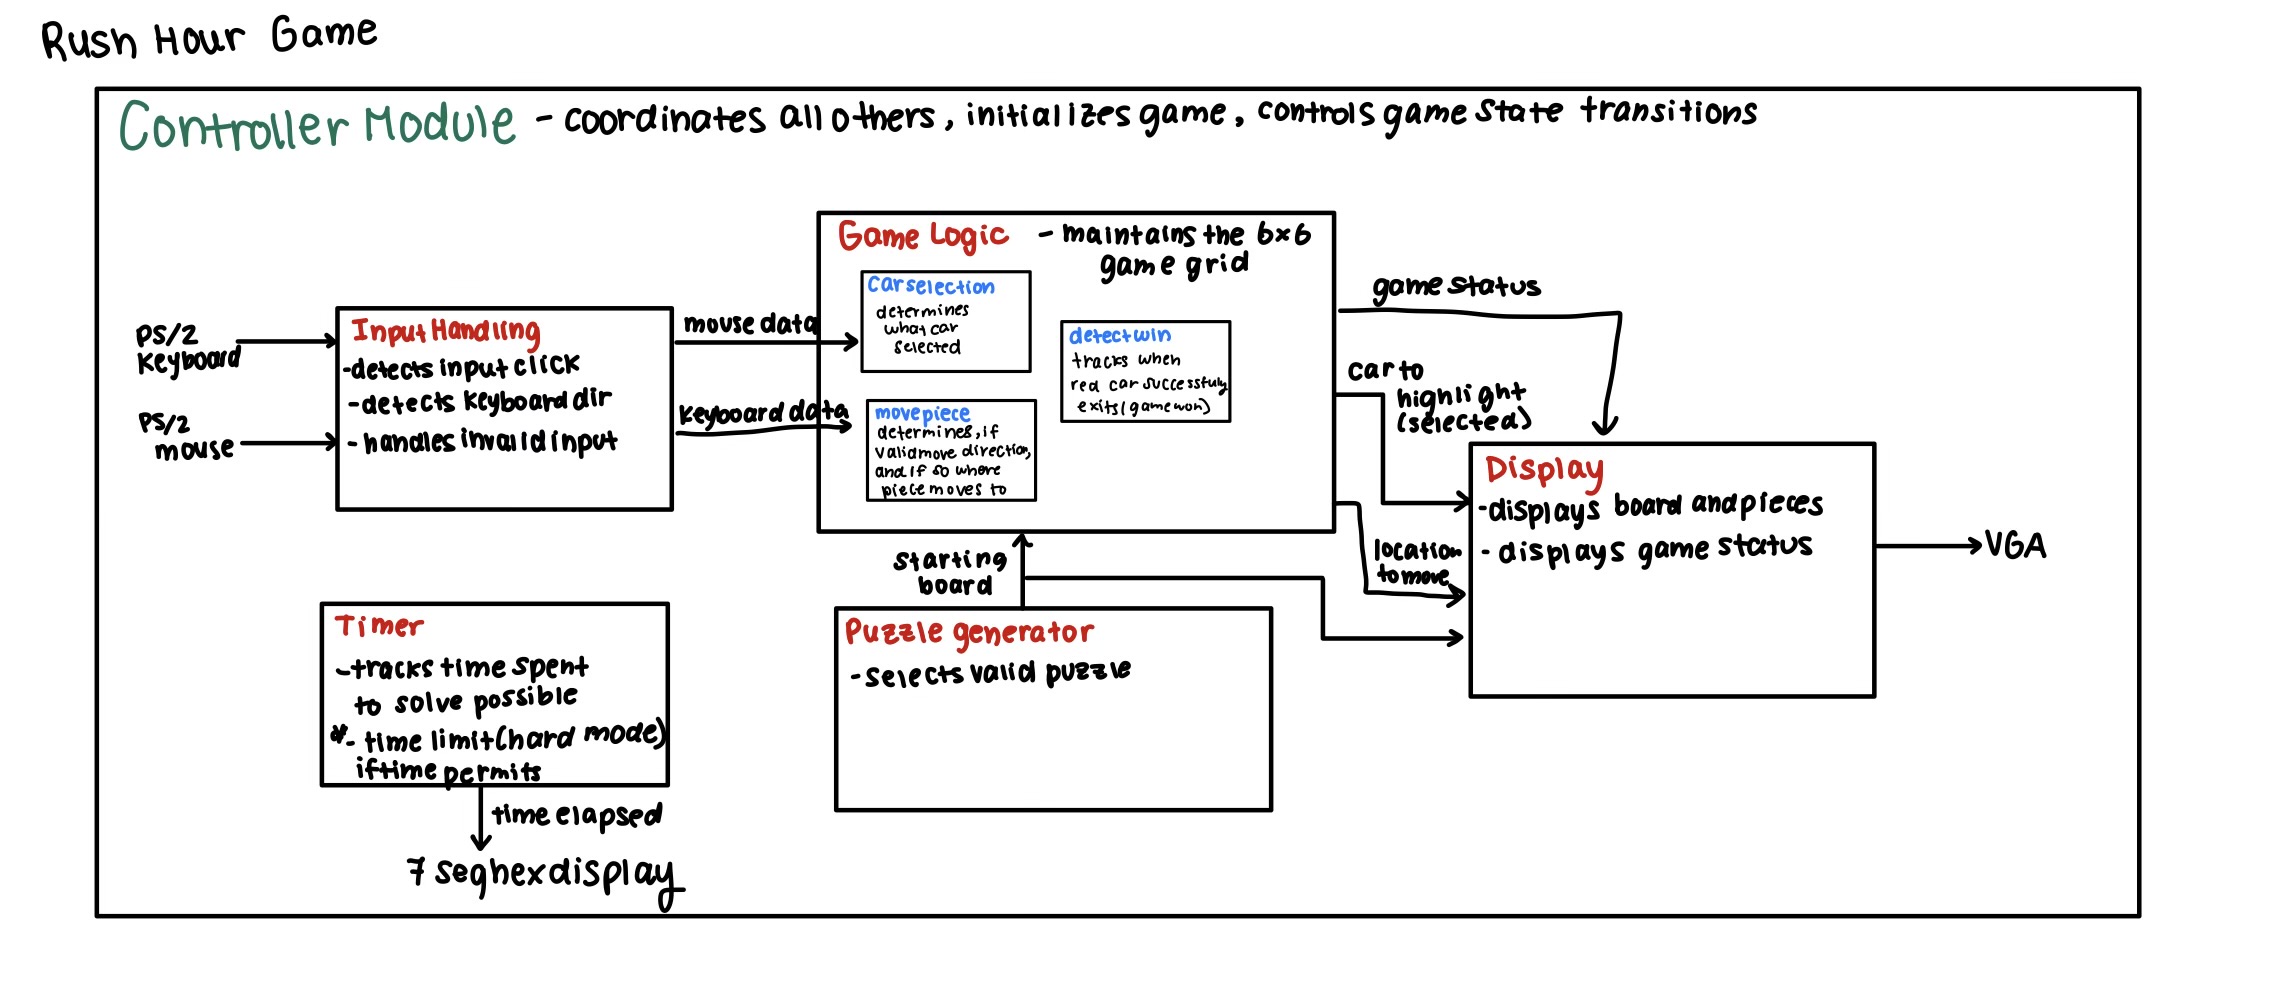 Rush Hour Game
Controller Module - coordinates all others, initializes game, controls game state transitions
PS/2
Keyboard
PS/2
mouse
Input Handling
-detects input click
-detects keyboard dir
- handles invalid input
mouse data
keyboard data
Game Logic - maintains the 6x6
game grid
Car selection
determines
what car
selected
detect win
tracks when
red car successfuly
exits (game won)
move piece
determines, if
valid move direction,
and if so where
piece moves to
game status
car to
highlight
(selected)
location
to move
Display
-displays board and pieces
- displays game status
VGA
starting
board
Puzzle generator
- selects valid puzzle
Timer
-tracks time spent
to solve possible
*- time limit (hard mode)
if time permits
time elapsed
7 seg hex display